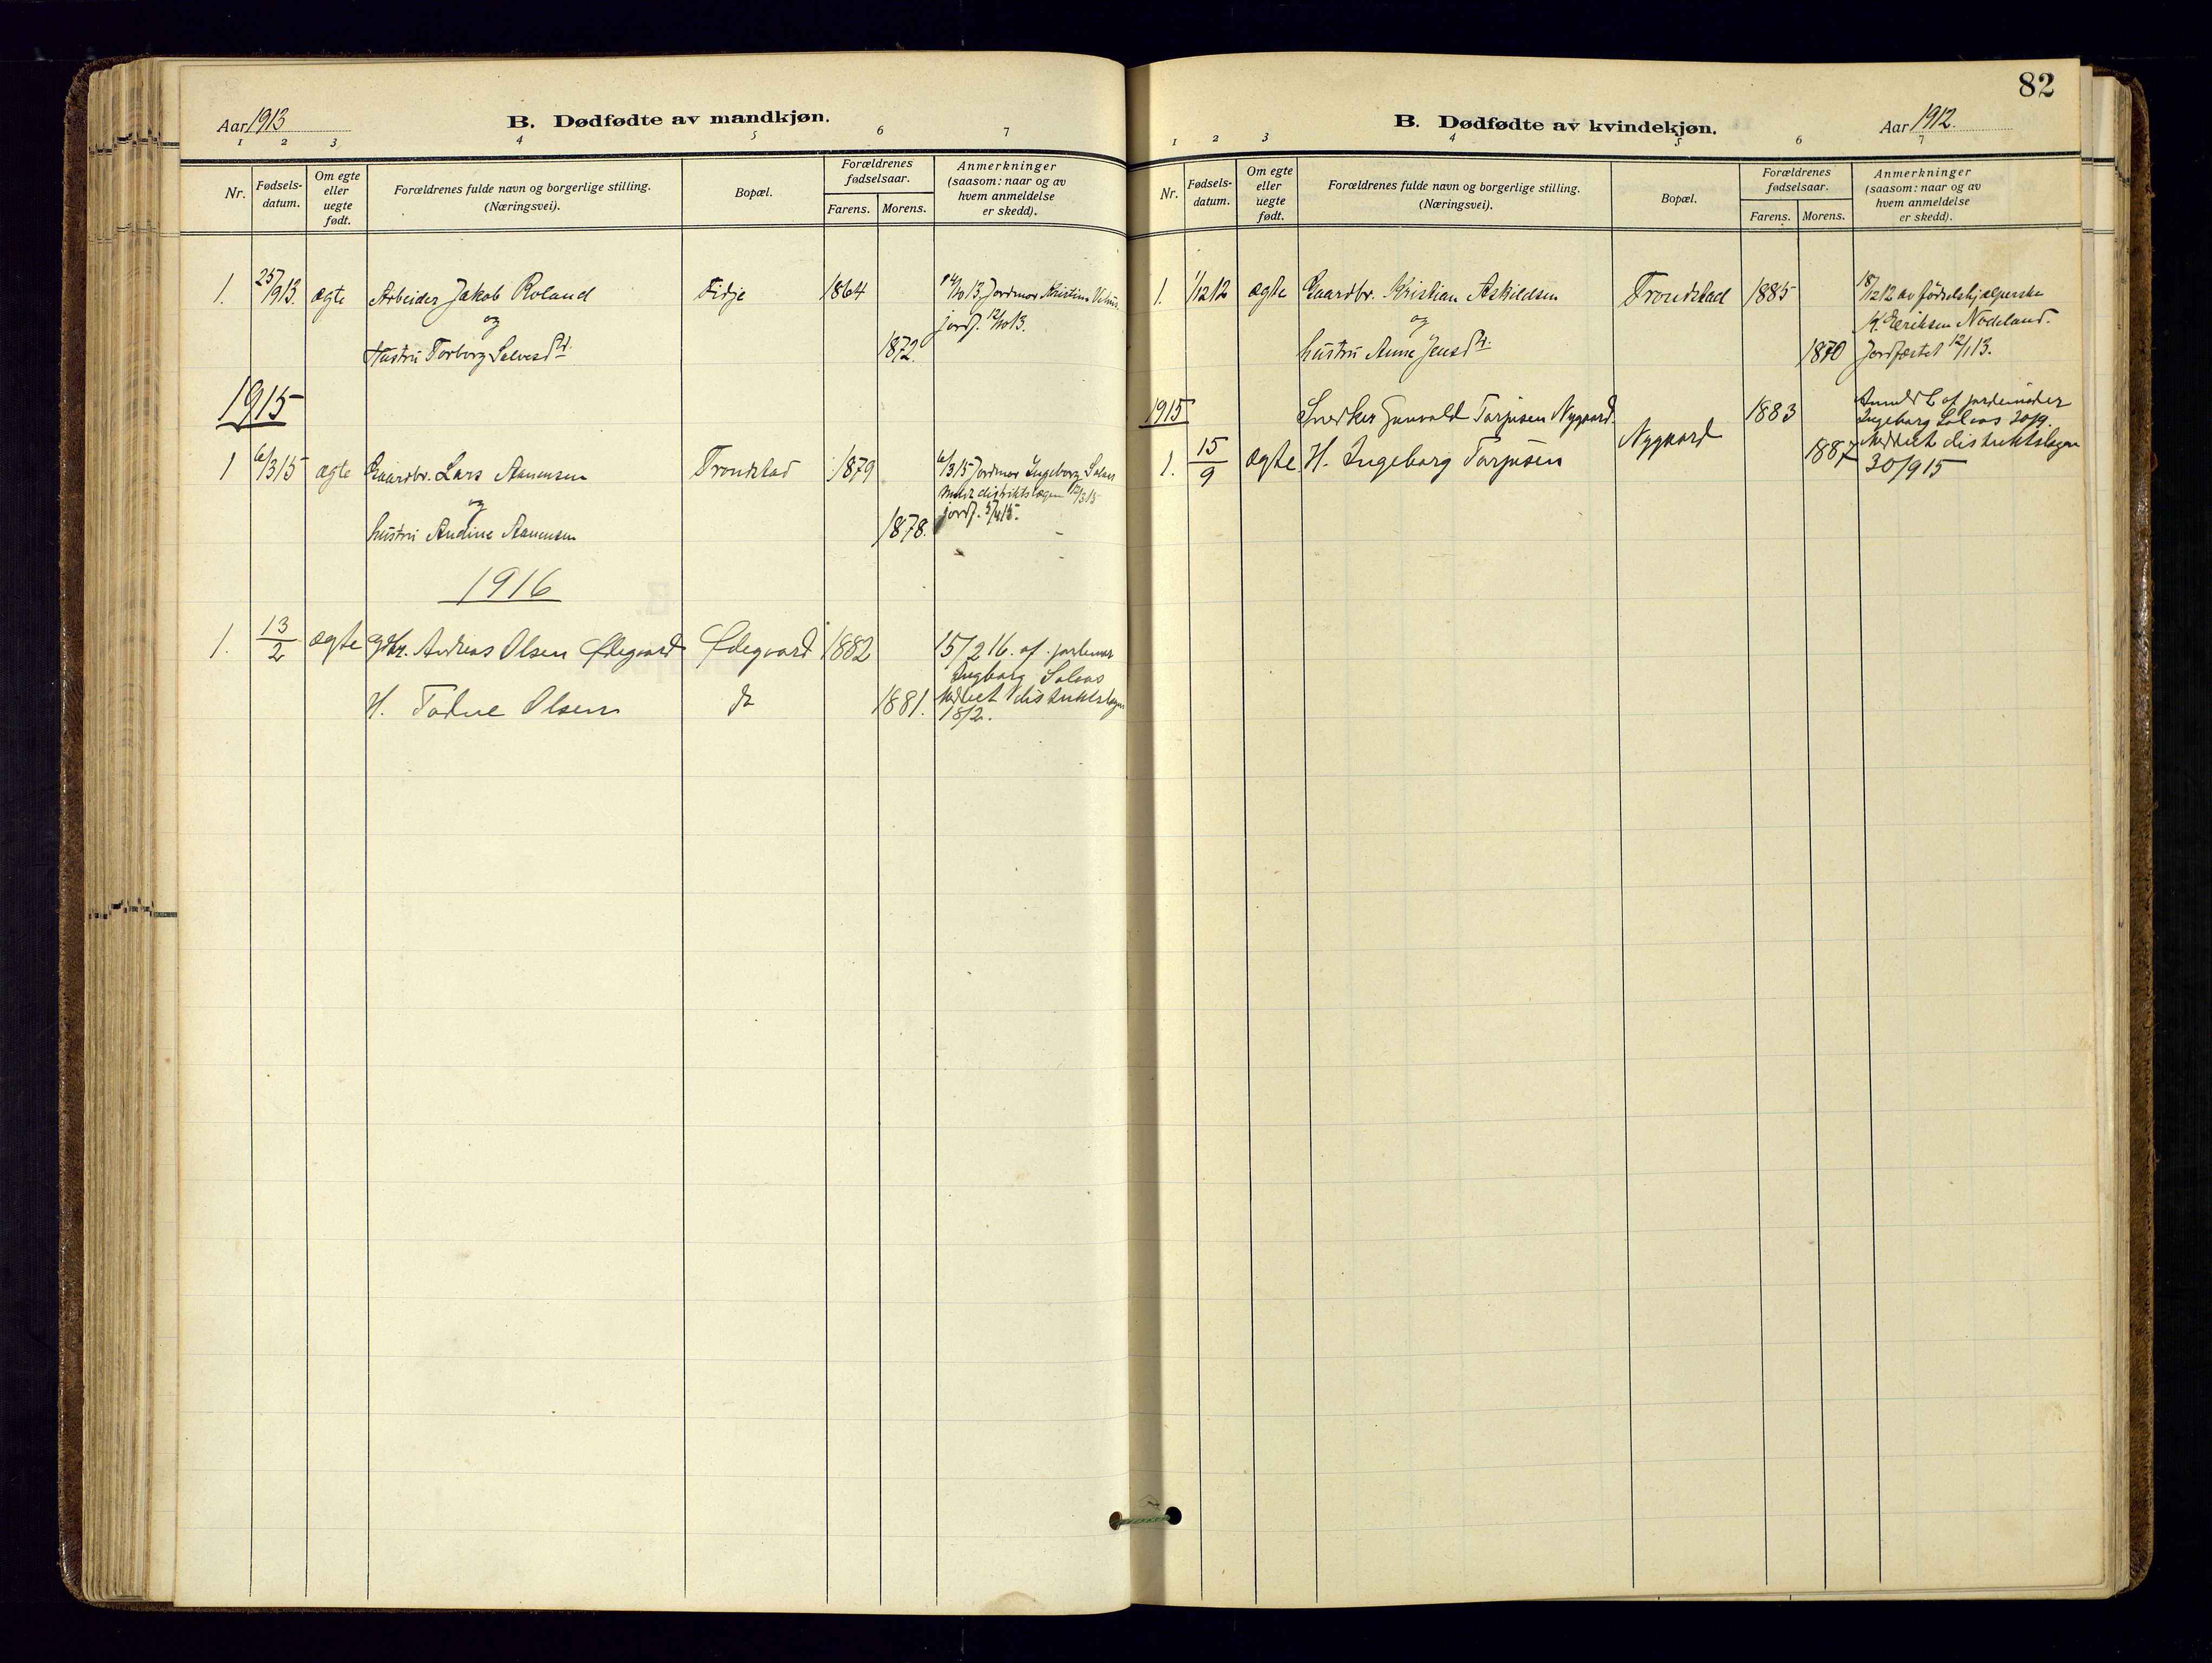 Aar 1913
B. Dødfødte av mandkjøn.
1 2 3 4 5 6 7
Nr.
Fødsels-
datum.
Om egte
eller
uegte
født.
Forældrenes fulde navn og borgerlige stilling.
(Næringsvei).
Bopæl.
Forældrenes
fødselsaar.
Farens. Morens.
Anmerkninger
(saasom: naar og av
hvem anmeldelse
er skedd).
1. 25/9 13. ægte Arbeider Jakob Roland Eidje 1864 14/10 13 Jordmor Kristine
og jordf. 12/10 13.
Hustru Torborg Salvesdtr. 1872.
1915
1 6/3 15 ægte Gaardbr. Lars Aanensen Trondstad 1879 6/3 15 Jordmor Ingeborg Solaas
og distriktslægen 12/3 15
jordf. 5/4 15.
hustru Andine Aanensen 1878.
1916
1. 13/2 ægte gbr. Andreas Olsen Ødegaard Ødegaard 1882 15/2 16. af jordemor
Ingborg Solaas
H. Todne Olsen do 1881. Meddelt distriktslægen
18/2.
82
B. Dødfødte av kvindekjøn.
Aar 1912.
1 2 3 4 5 6 7
Nr.
Fødsels-
datum.
Om egte
eller
uegte
født.
Forældrenes fulde navn og borgerlige stilling.
(Næringsvei).
Bopæl.
Forældrenes
fødselsaar.
Farens. Morens.
Anmerkninger
(saasom: naar og av
hvem anmeldelse
er skedd).
1. 1/12 12 ægte Gaardbr. Kristian Askildsen Trondstad 1885 18/12 12 av fødselshjælperske
og K. Eriksen Nodeland.
hustru Anne Jensdtr. 1870 Jordfæstet 12/1 13.
1915 Snedker Gunvald Torjusen Nygaard. 1883 Anmeldt af jordemoder
Ingeborg Solaas 20/9.
1. 15/9 ægte H. Ingeborg Torjusen Nygaard 1887 Meddelt distriktslægen
30/9 15